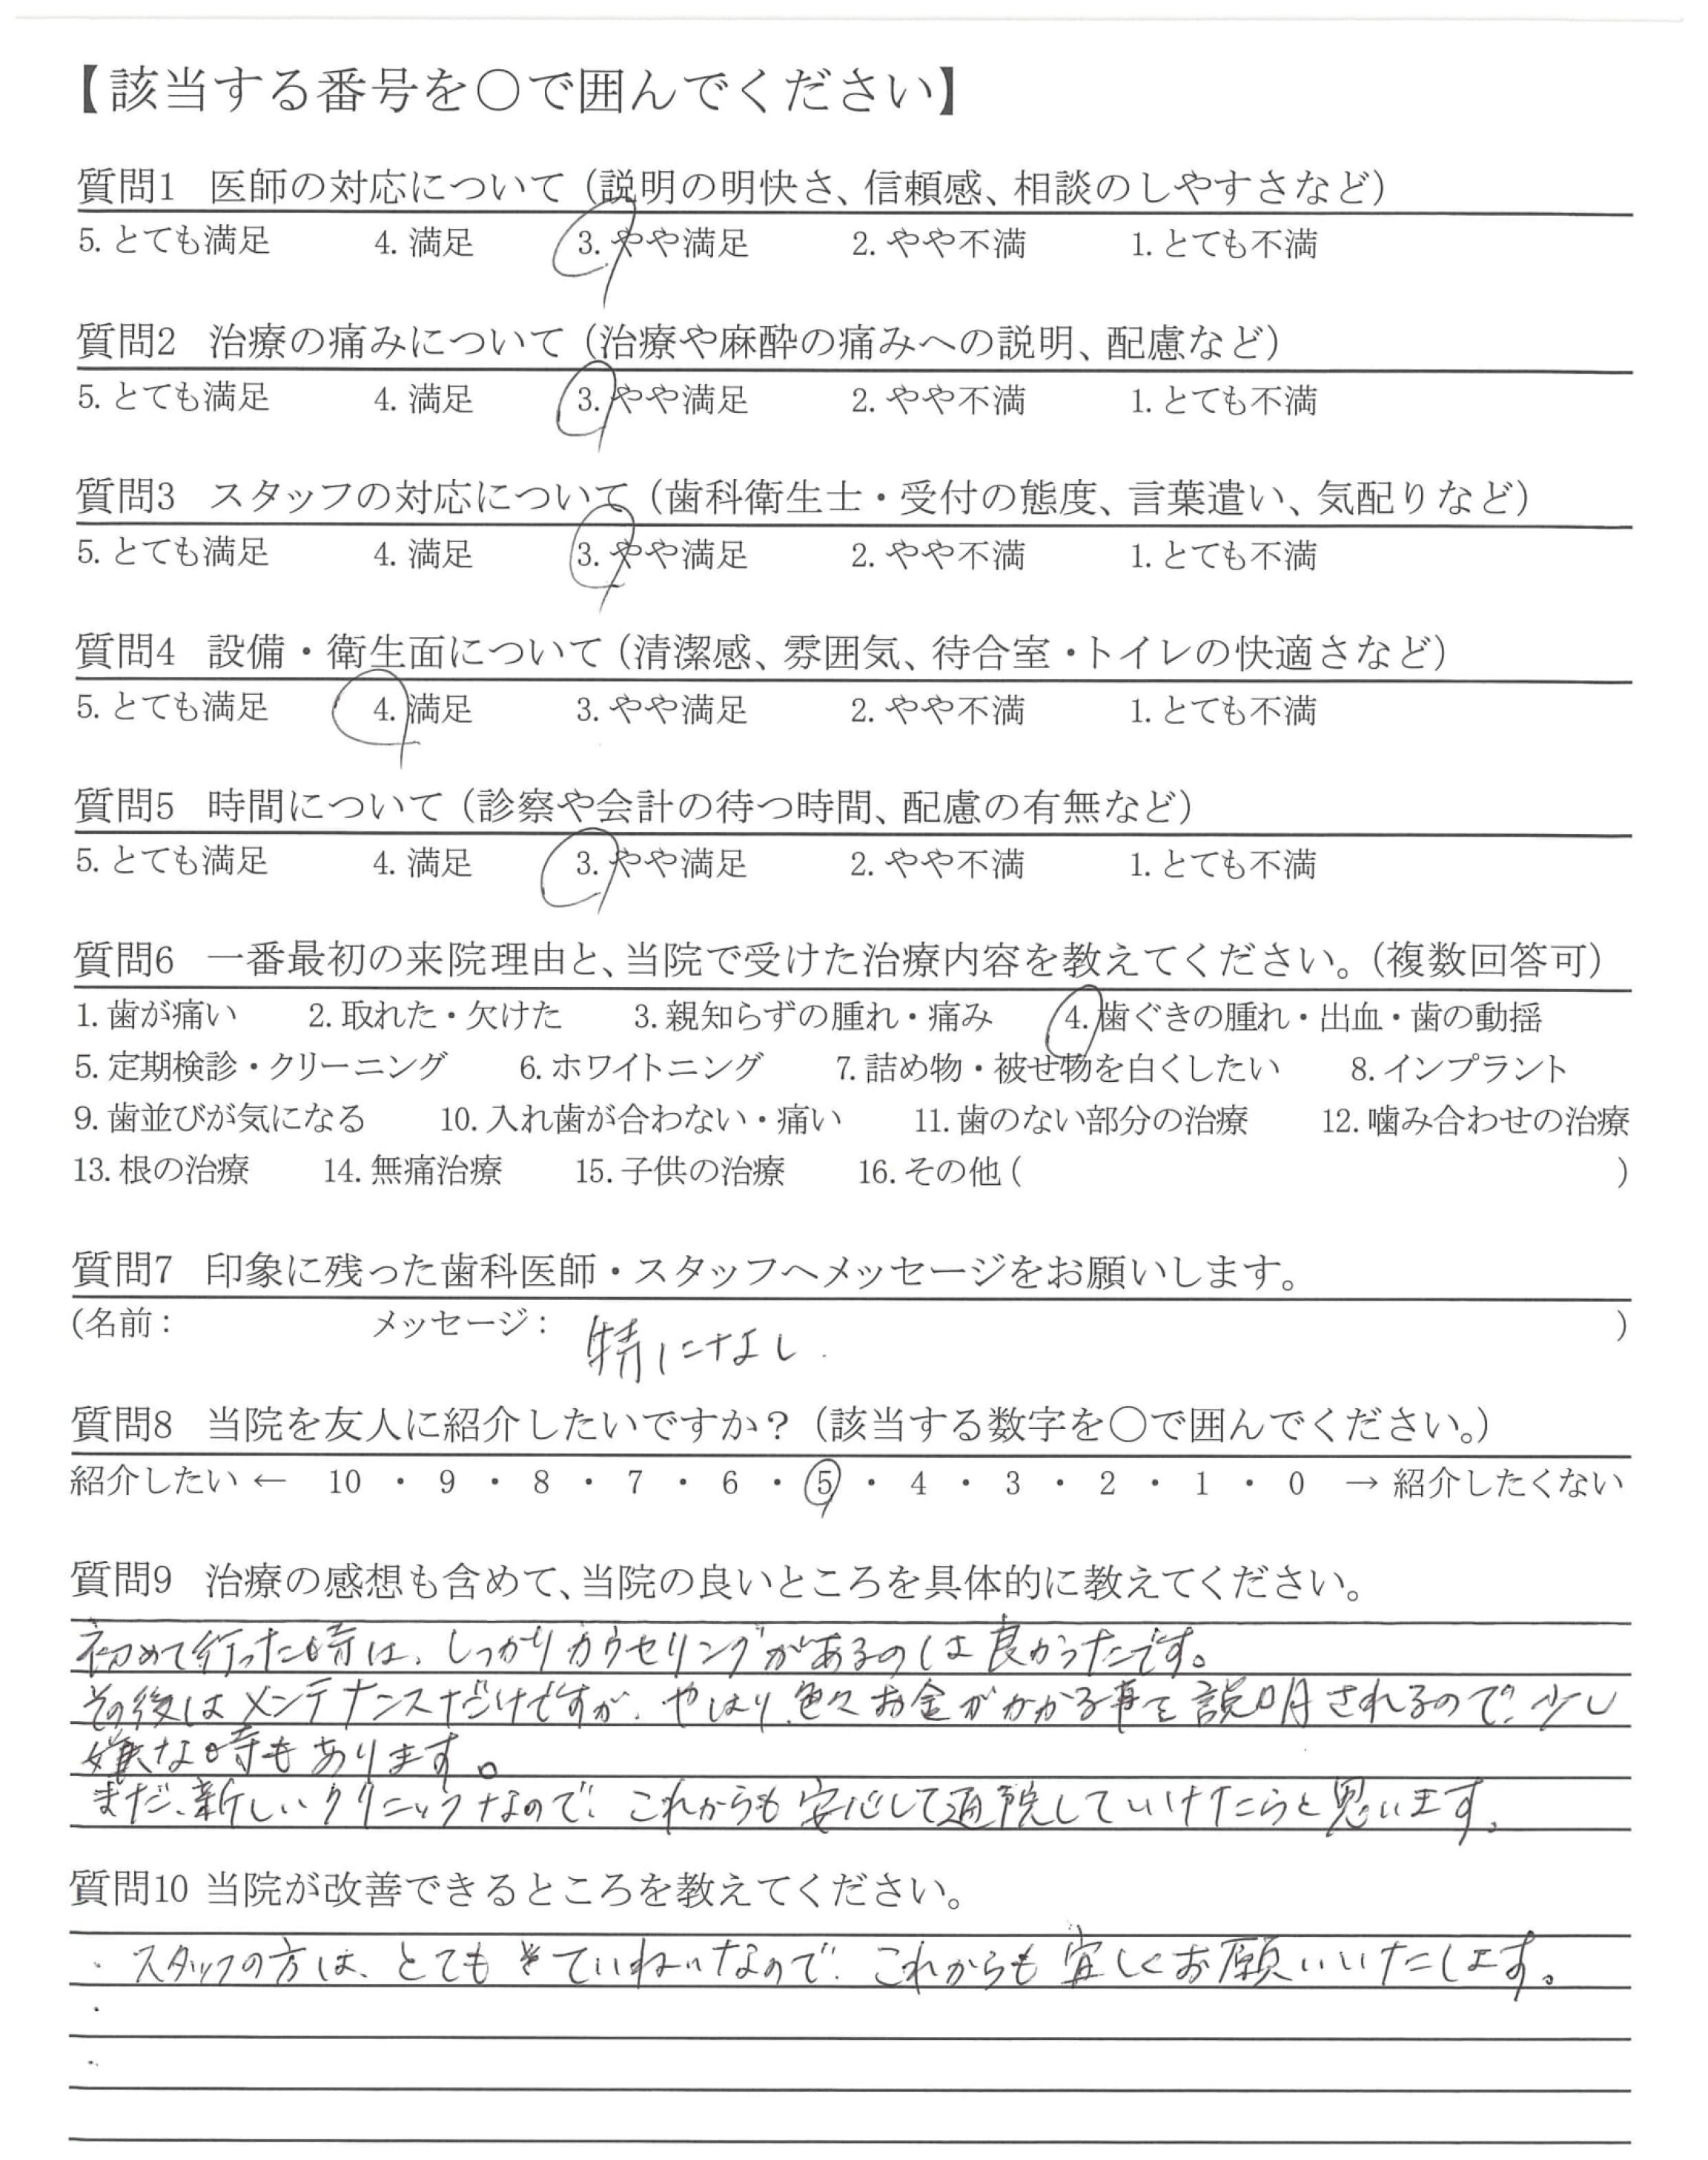 【該当する番号を○で囲んでください】
質問1 医師の対応について（説明の明快さ、信頼感、相談のしやすさなど）
5. とても満足 4. 満足 3. やや満足 2. やや不満 1. とても不満
質問2 治療の痛みについて（治療や麻酔の痛みへの説明、配慮など）
5. とても満足 4. 満足 3. やや満足 2. やや不満 1. とても不満
質問3 スタッフの対応について（歯科衛生士・受付の態度、言葉遣い、気配りなど）
5. とても満足 4. 満足 3. やや満足 2. やや不満 1. とても不満
質問4 設備・衛生面について（清潔感、雰囲気、待合室・トイレの快適さなど）
5. とても満足 4. 満足 3. やや満足 2. やや不満 1. とても不満
質問5 時間について（診察や会計の待つ時間、配慮の有無など）
5. とても満足 4. 満足 3. やや満足 2. やや不満 1. とても不満
質問6 一番最初の来院理由と、当院で受けた治療内容を教えてください。（複数回答可）
1. 歯が痛い 2. 取れた・欠けた 3. 親知らずの腫れ・痛み 4. 歯ぐきの腫れ・出血・歯の動揺
5. 定期検診・クリーニング 6. ホワイトニング 7. 詰め物・被せ物を白くしたい 8. インプラント
9. 歯並びが気になる 10. 入れ歯が合わない・痛い 11. 歯のない部分の治療 12. 噛み合わせの治療
13. 根の治療 14. 無痛治療 15. 子供の治療 16. その他 ( )
質問7 印象に残った歯科医師・スタッフへメッセージをお願いします。
(名前： メッセージ： 特になし. )
質問8 当院を友人に紹介したいですか？（該当する数字を○で囲んでください。）
紹介したい ← 10 ・ 9 ・ 8 ・ 7 ・ 6 ・ 5 ・ 4 ・ 3 ・ 2 ・ 1 ・ 0 → 紹介したくない
質問9 治療の感想も含めて、当院の良いところを具体的に教えてください。
初めて行った時は、しっかりカウセリングがあるのは良かったです。
その後はメンテナンスだけですが、やはり色々お金がかかる事を説明されるので、少し
嫌な時もあります。
まだ、新しいクリニックなので、これからも安心して通院していけたらと思います。
質問10 当院が改善できるところを教えてください。
・スタッフの方は、とても ていねいなので、これからも宜しくお願いいたします。
・
・